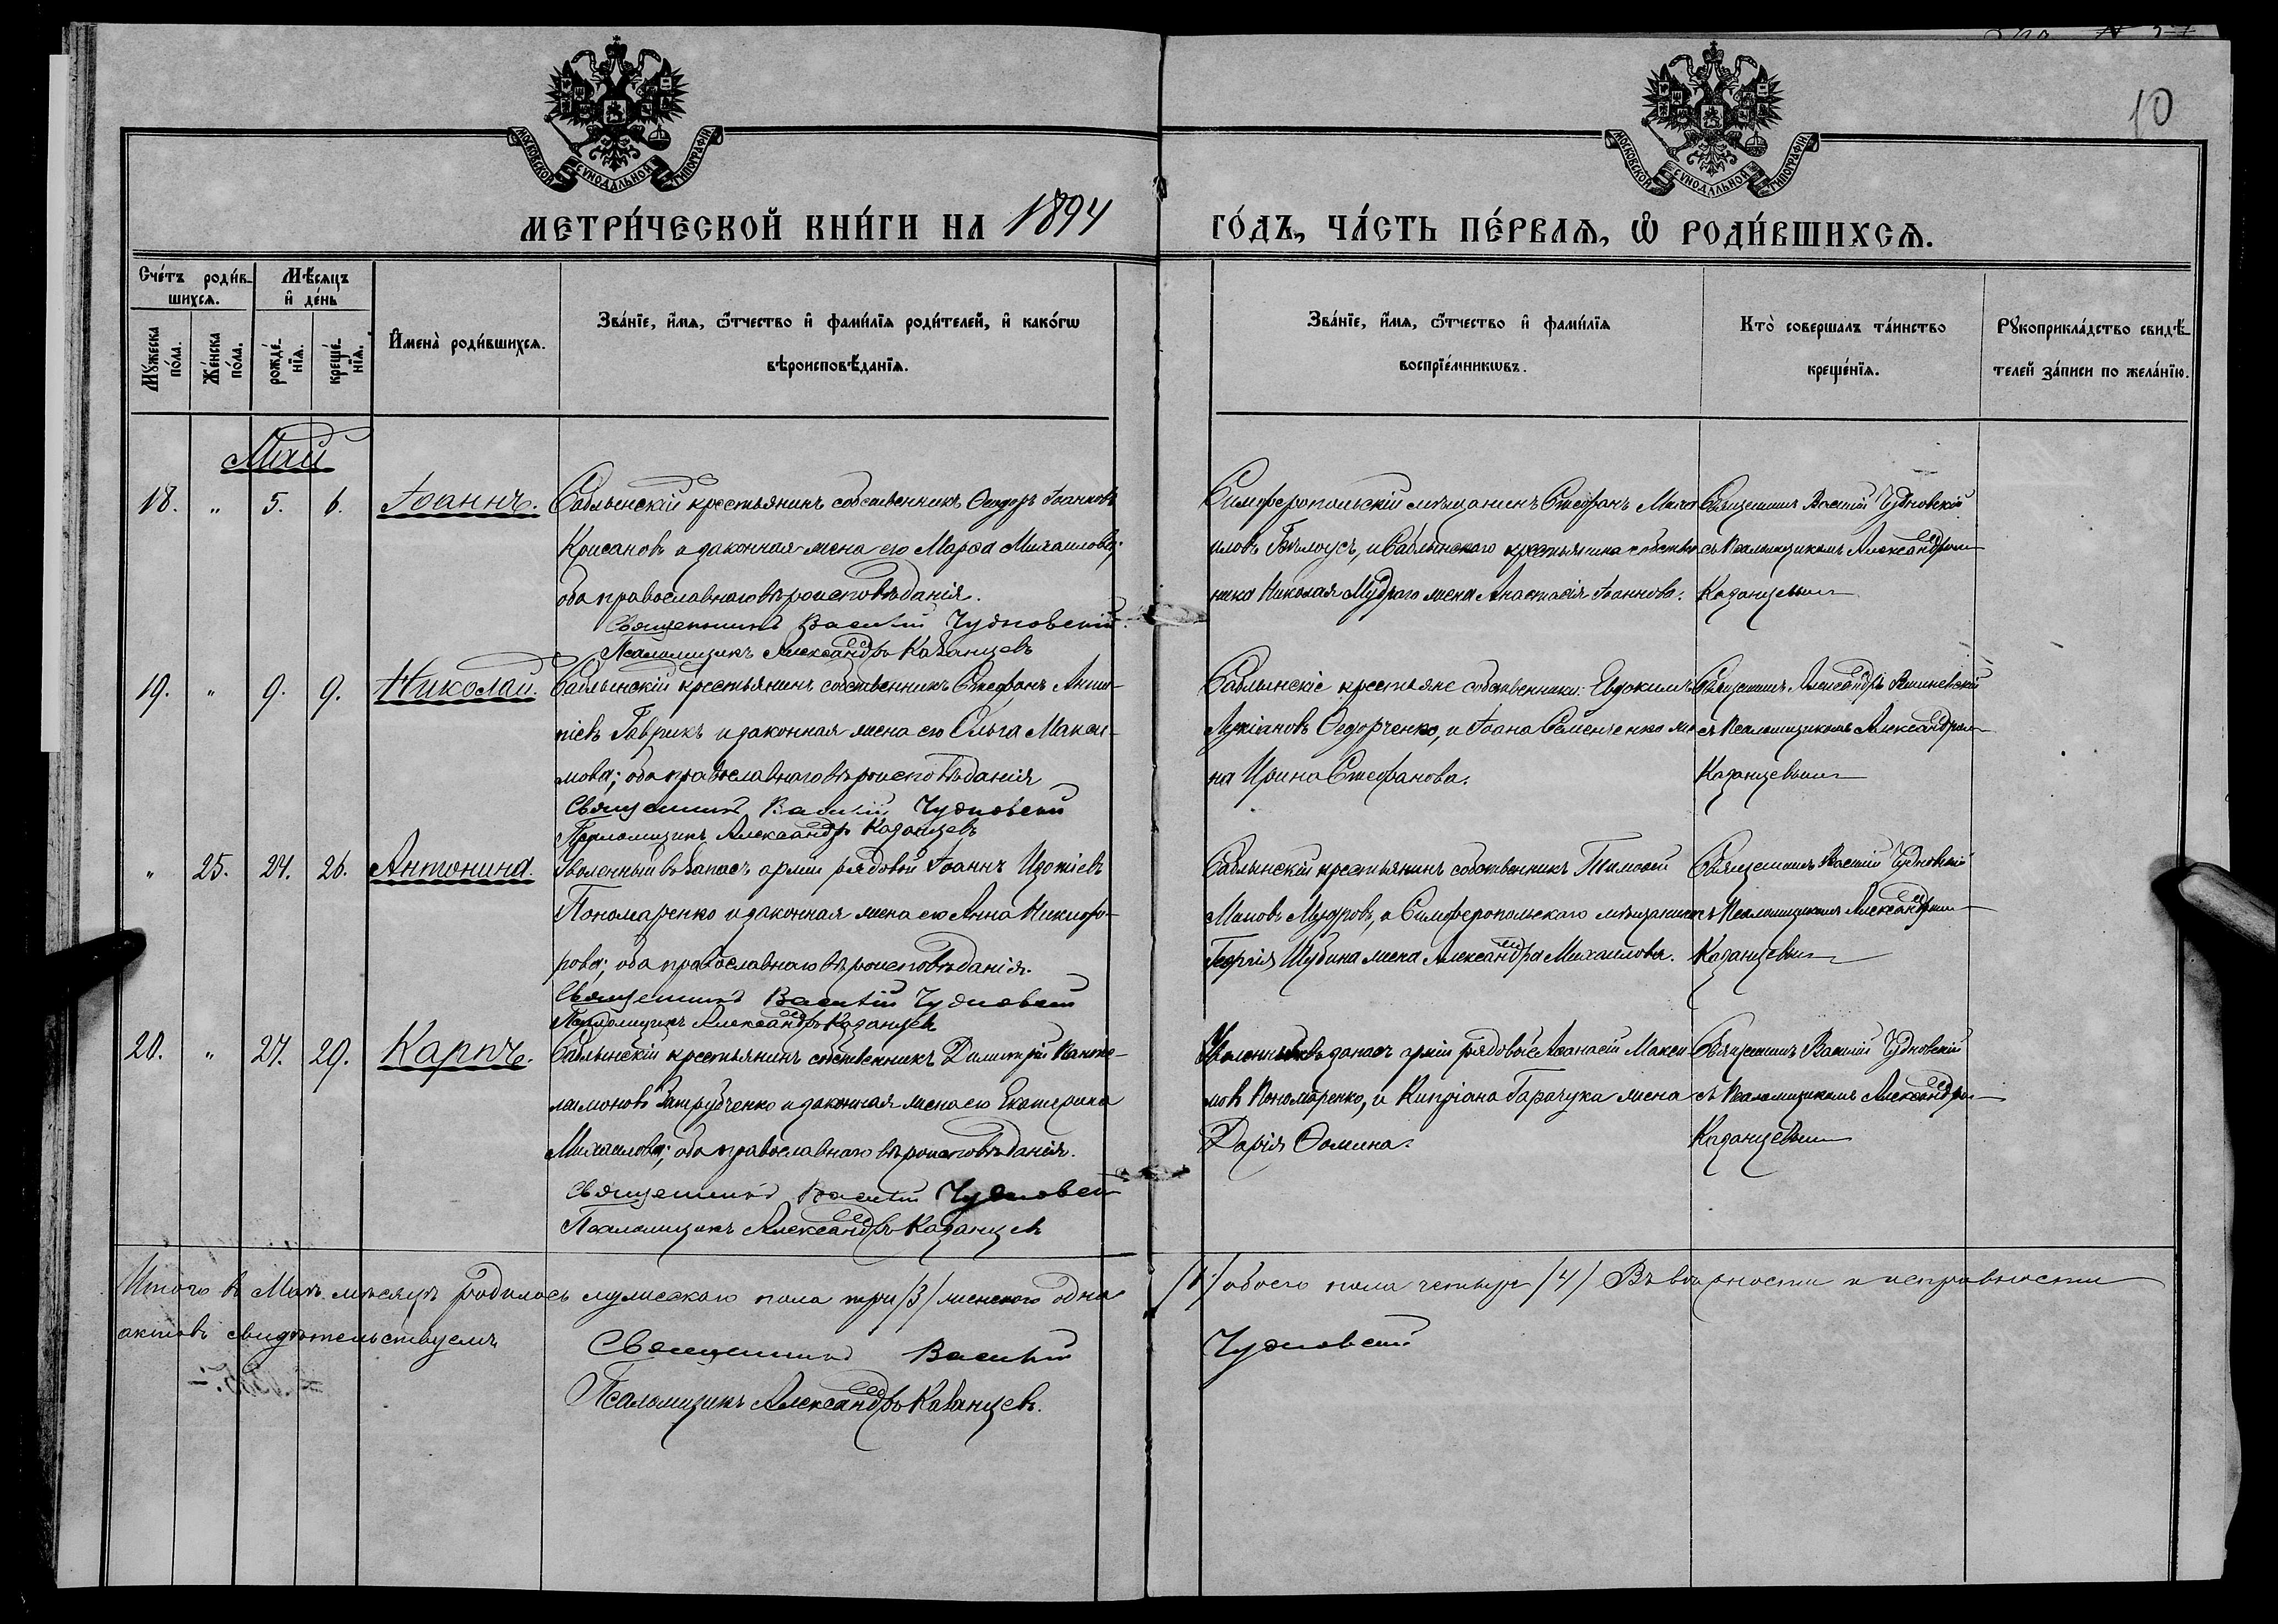 10
МОСКОВСКОЙ СѴНОДАЛЬНОЙ ТИПОГРАФІИ
МОСКОВСКОЙ СѴНОДАЛЬНОЙ ТИПОГРАФІИ
МЕТРИ́ЧЕСКОЙ КНИ́ГИ НА 1894 ГО́ДЪ, ЧА́СТЬ ПЕ́РВАѦ, Ѡ РОДИ́ВШИХСѦ.
Сче́тъ роди́вшихсѧ.
Мꙋ́жеска по́ла.
Же́нска по́ла.
Мѣ́сяцъ и де́нь
рожде́нїѧ.
креще́нїѧ.
Имена̀ роди́вшихсѧ.
Зва́нїе, и́мѧ, ѻ́тчество и фами́лїѧ роди́телей, и како́гѡ
вѣроисповѣ́данїѧ.
Зва́нїе, и́мѧ, ѻ́тчество и фами́лїѧ
воспрїе́мникѡвъ.
Кто̀ соверша́лъ та́инство
креще́нїѧ.
Рꙋкоприкла́дство свидѣ́телей за́писи по жела́нїю.
Май
18. „ 5. 6. Іоаннъ.
Саблынскій крестьянинъ собственникъ Ѳеодоръ Іоанновъ
Крисановъ и законная жена его Марѳа Михаилова;
оба православнаго вѣроисповѣданія.
Священникъ Василій Чудновскій
Псаломщикъ Александръ Казанцевъ
Симферопольскій мѣщанинъ Стефанъ Миха
иловъ Бѣлоусъ, и Саблынскаго крестьянина собствен
ника Николая Мудраго жена Анастасія Іоаннова.
Священникъ Василій Чудновскій
съ Псаломщикомъ Александромъ
Казанцевымъ
19. „ 9. 9. Николай.
Саблынскій крестьянинъ собственникъ Стефанъ Анти-
піевъ Гаврикъ и законная жена его Ольга Макси-
мова; оба православнаго вѣроисповѣданія
Священникъ Василій Чудновскій
Псаломщикъ Александръ Казанцевъ
Саблынскіе крестьяне собственники: Евдокимъ
Лукіановъ Ѳедорченко, и Іоана Семенченко же
на Ирина Стефанова.
Священникъ Александръ
съ Псаломщикомъ Александромъ
Казанцевымъ
„ 25. 24. 26. Антонина.
Уволенный въ запасъ арміи рядовой Іоаннъ Изотіевъ
Пономаренко и законная жена его Анна Никифо-
рова; оба православнаго вѣроисповѣданія.
Священникъ Василій Чудновскій
Псаломщикъ Александръ Казанцевъ
Саблынскій крестьянинъ собственникъ Тимоѳей
Мудровъ, и Симферопольскаго мѣщанина
Георгія Шубина жена Александра Михаилова.
Священникъ Василій Чудновскій
съ Псаломщикомъ Александромъ
Казанцевымъ
20. „ 27. 29. Карпъ.
Саблынскій крестьянинъ собственникъ Димитрій Панте-
лимоновъ и законная жена его Екатерина
Михаилова; оба православнаго вѣроисповѣданія.
Священникъ Василій Чудновскій
Псаломщикъ Александръ Казанцевъ
Уволенный въ запасъ арміи рядовой Аѳанасій Макси
мовъ Пономаренко, и Кипріана Гарачука жена
Дарія Ѳомина.
Священникъ Василій Чудновскій
съ Псаломщикомъ Александромъ
Казанцевымъ
Итого въ Маѣ мѣсяцѣ родилось мужескаго пола три /3/ женскаго одна /1/ обоего пола четыре /4/ Въ вѣрности и исправности
актовъ свидѣтельствуемъ
Священникъ Василій Чудновскій
Псаломщикъ Александръ Казанцевъ.